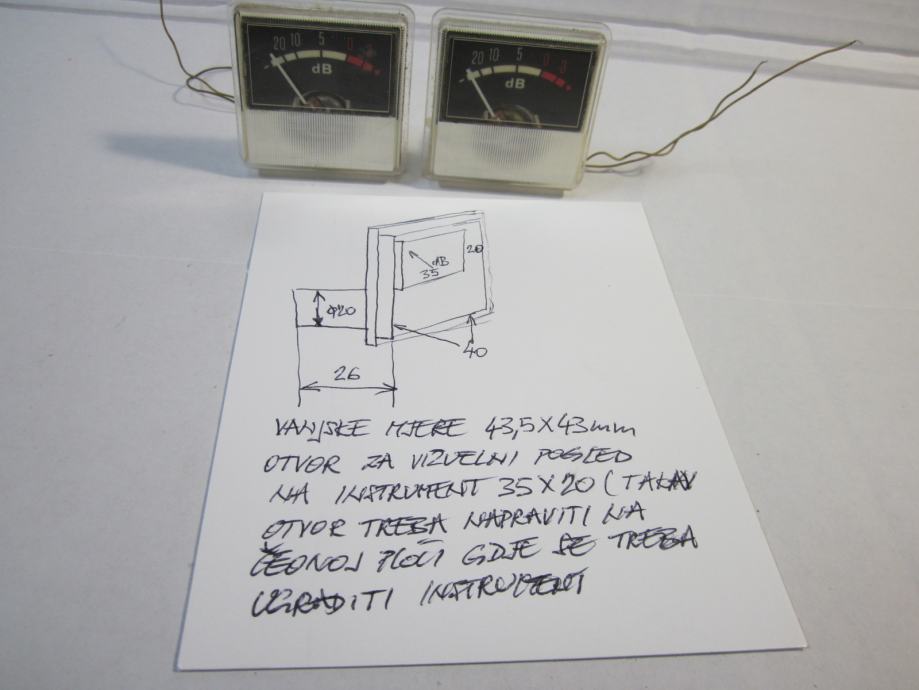 20 10 5 0 3
dB
20 10 5 0 3
dB
20
dB
35
φ20
40
26
VANJSKE MJERE 43,5X43mm
OTVOR ZA VIZUELNI POGLED
NA INSTRUMENT 35X20 (TAKAV
OTVOR TREBA NAPRAVITI NA
ČEONOJ PLOČI GDJE SE TREBA
UGRADITI INSTRUMENT